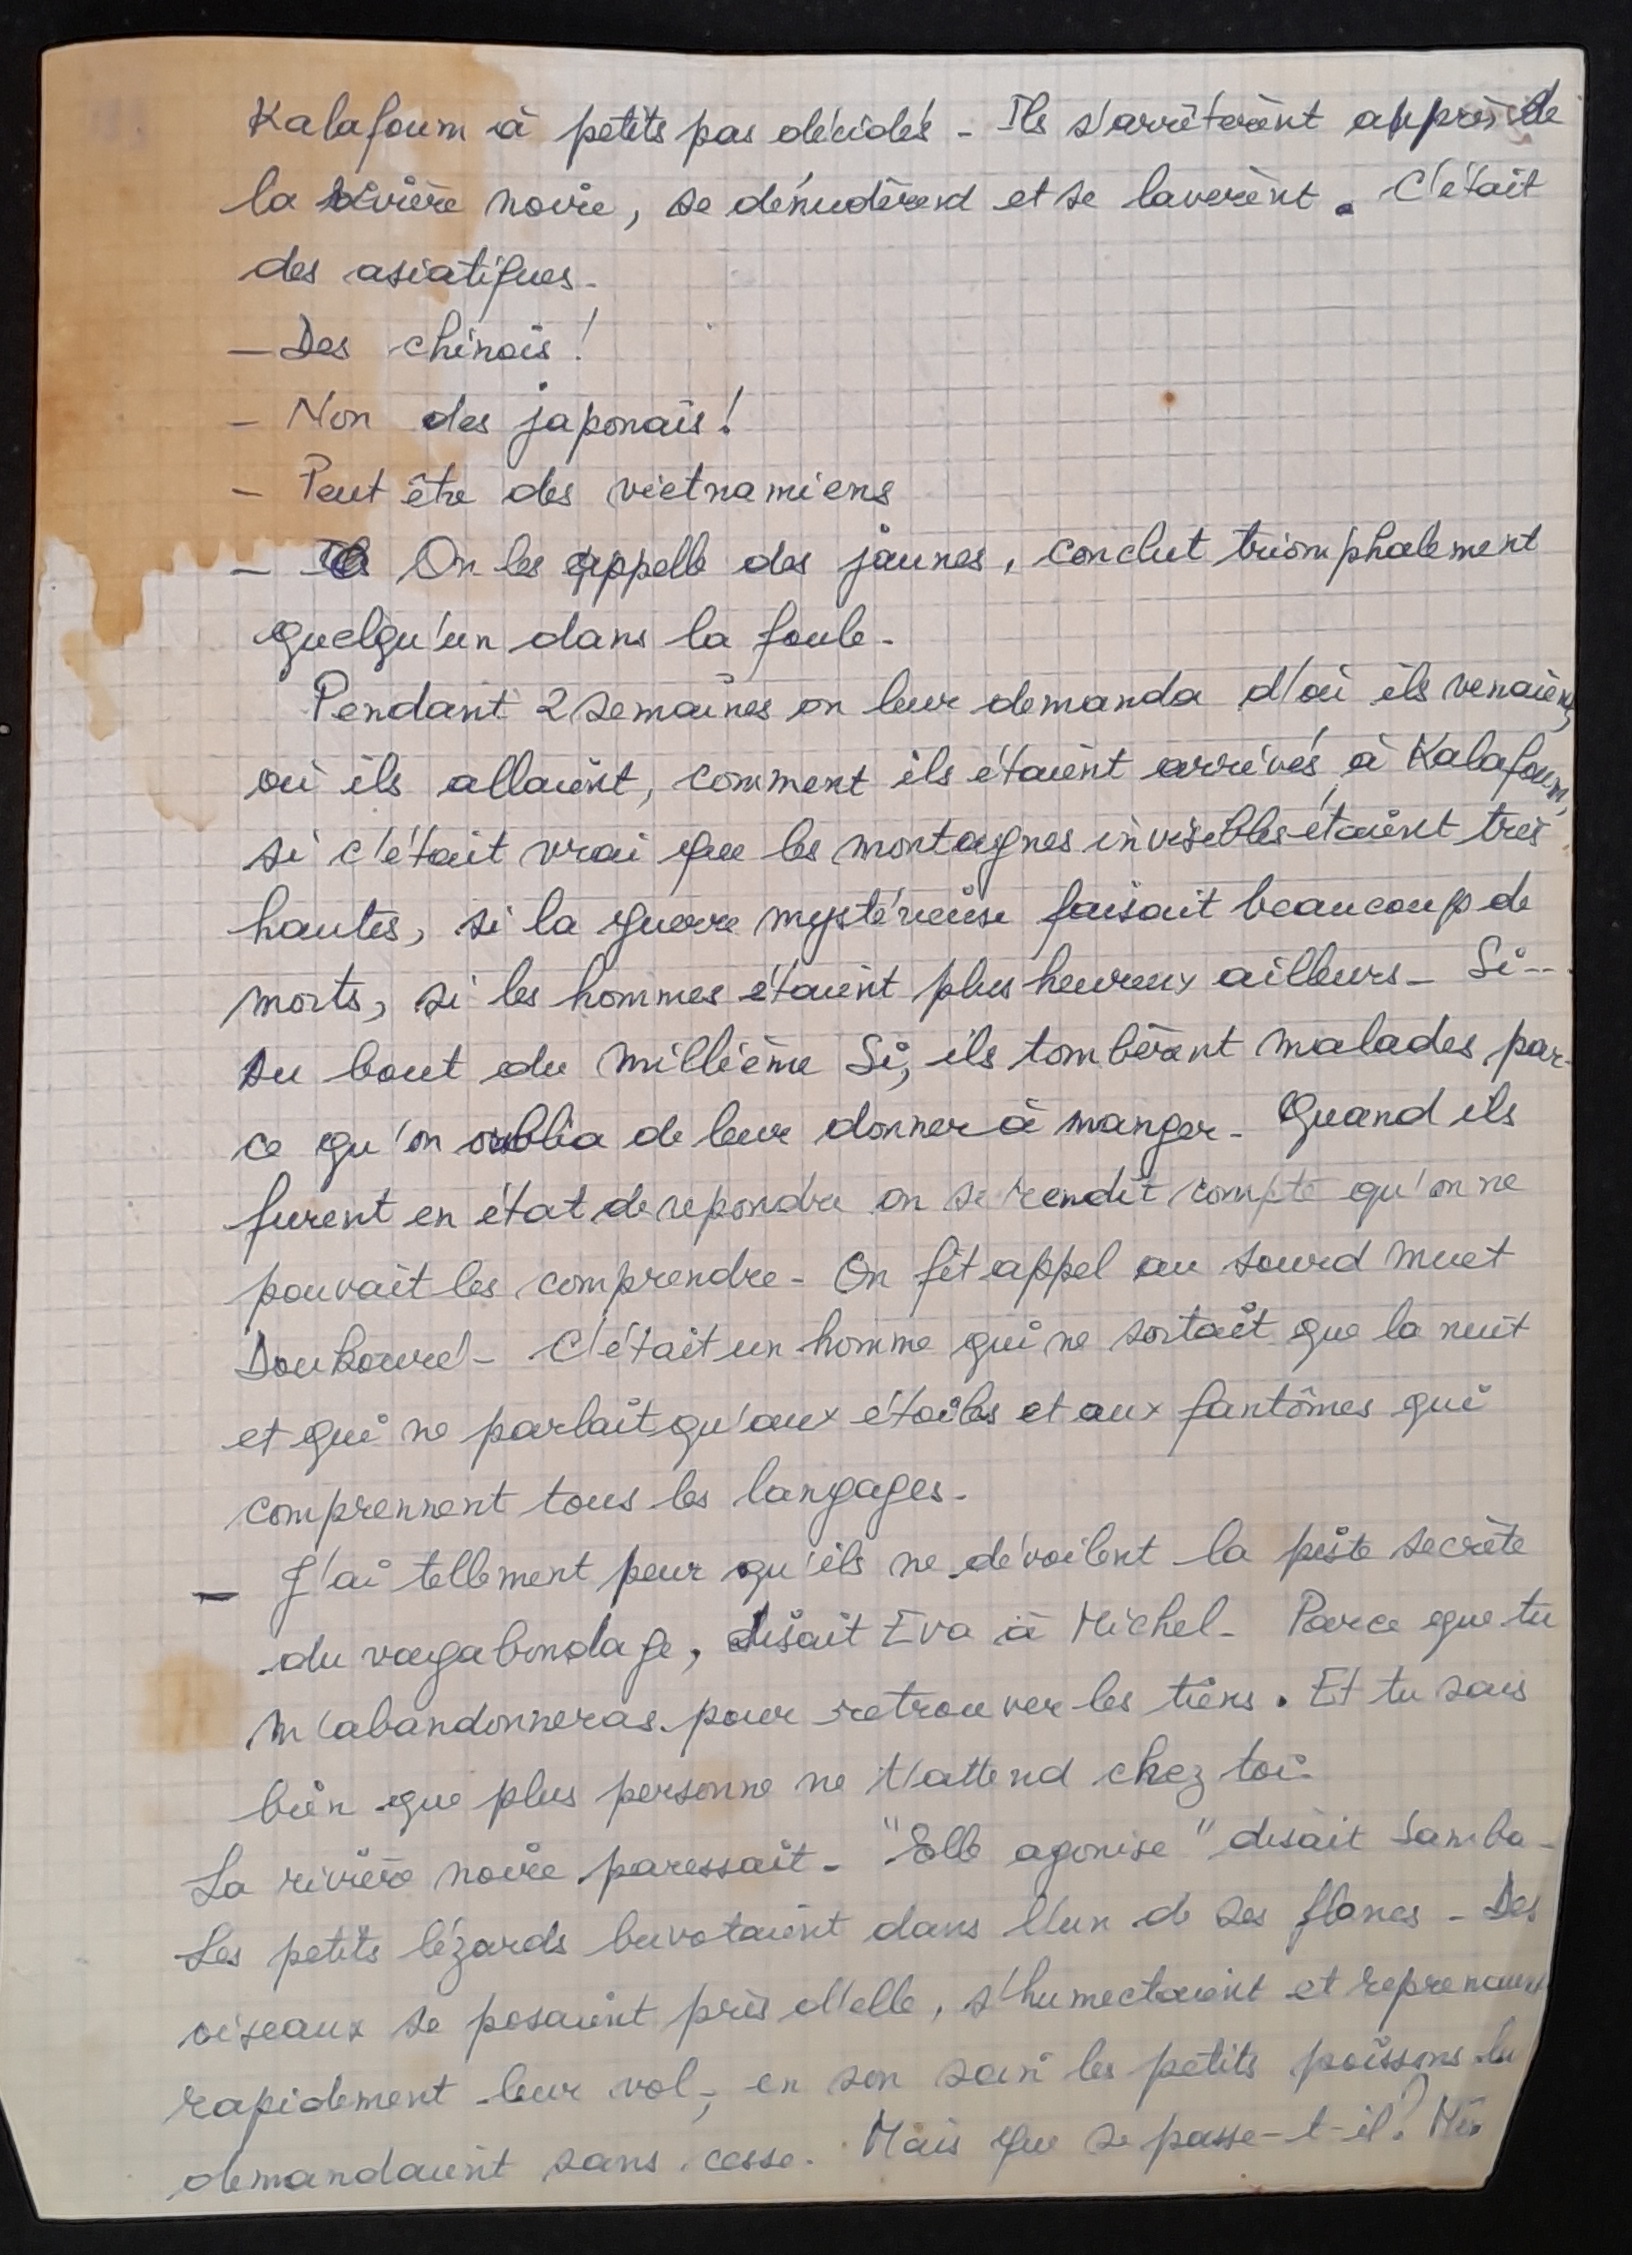 Kalafoum à petits pas décidés - Ils s'arrêterènt auprès de
la rivière noire, se dénudèrend et se laverènt. C'était
des asiatiques.
- Des chinois !
- Non des japonais !
- Peut être des vietnamiens
- On les appelle des jaunes, conclut triomphalement
quelqu'un dans la foule -
Pendant 2 semaines on leur demanda d'où ils venaient,
où ils allaient, comment ils étaient arrivés à Kalafoum,
si c'était vrai que les montagnes invisibles étaient très
hautes, si la guerre mystérieuse faisait beaucoup de
morts, si les hommes étaient plus heureux ailleurs - Si...
Au bout du millième Si, ils tombèrent malades par-
ce qu'on oublia de leur donner à manger - Quand ils
furent en état de repondre on se rendit compte qu'on ne
pouvait les comprendre - On fit appel au sourd muet
Doukouré - C'était un homme qui ne sortait que la nuit
et qui ne parlait qu'aux étoiles et aux fantômes qui
comprennent tous les langages -
- J'ai tellement peur qu'ils ne dévoilent la piste secrète
du vagabondage, disait Eva à Michel - Parce que tu
m'abandonneras pour retrouver les tiens. Et tu sais
bien que plus personne ne t'attend chez toi.
La rivière noire paressait - "Elle agonise" disait Samba -
Les petits lézards buvotaient dans l'un de ses flancs - Des
oiseaux se posaient près d'elle, s'humectaient et reprenaient
rapidement leur vol ; en son sein les petits poissons lui
demandaient sans cesse. Mais que se passe-t-il ?